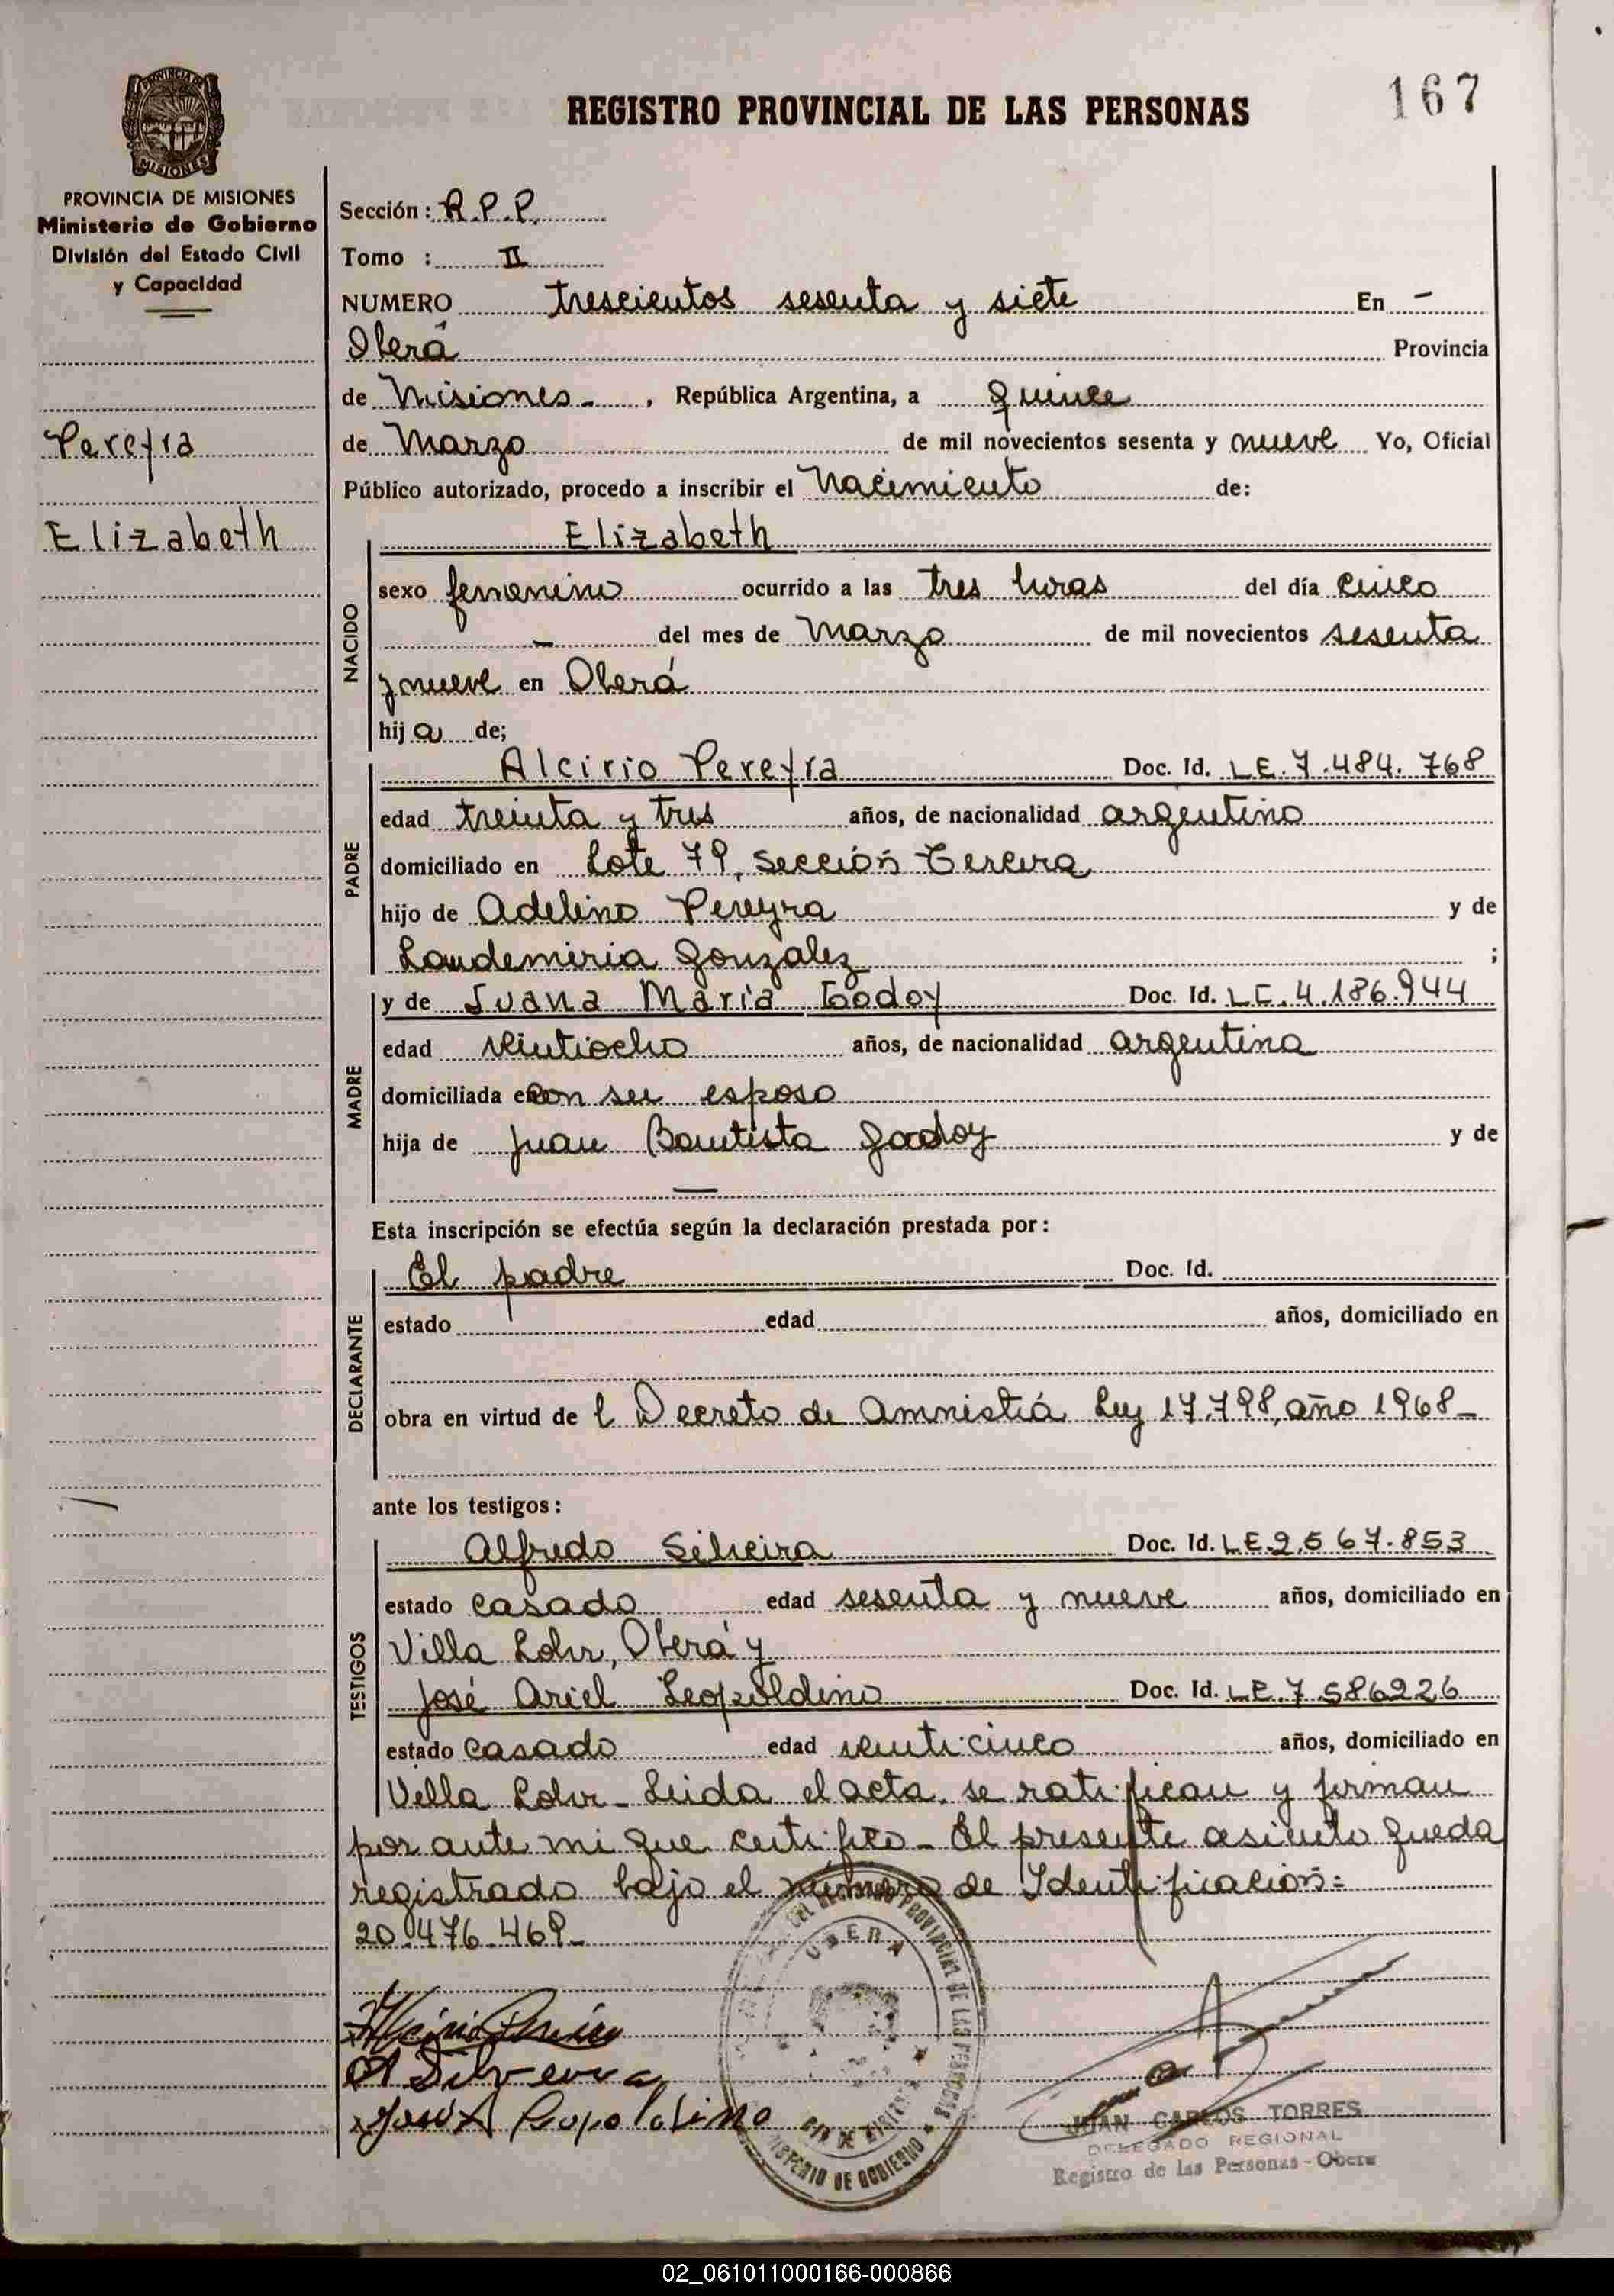 167
REGISTRO PROVINCIAL DE LAS PERSONAS
PROVINCIA DE MISIONES
MISIONES
PROVINCIA DE MISIONES
Ministerio de Gobierno
División del Estado Civil
y Capacidad
Pereyra
Elizabeth
Sección: R.P.P.
Tomo : II
NUMERO trescientos sesenta y siete En -
Oberá Provincia
de Misiones - , República Argentina, a quince
de Marzo de mil novecientos sesenta y nueve Yo, Oficial
Público autorizado, procedo a inscribir el Nacimiento de:
Elizabeth
NACIDO
sexo femenino ocurrido a las tres horas del día cinco
- del mes de Marzo de mil novecientos sesenta
y nueve en Oberá
hija de;
PADRE
Alcirio Pereyra Doc. Id. L.E. 7.484.768
edad treinta y tres años, de nacionalidad argentino
domiciliado en Lote 79, Sección Tercera
hijo de Adelino Pereyra y de
Laudemiria Gonzalez ;
MADRE
y de Juana Maria Godoy Doc. Id. L.C. 4.186.944
edad veintiocho años, de nacionalidad argentina
domiciliada en con su esposo
hija de Juan Bautista Godoy y de
—
Esta inscripción se efectúa según la declaración prestada por:
DECLARANTE
El padre Doc. Id.
estado edad años, domiciliado en
obra en virtud de l Decreto de Amnistiá Ley 17.798, año 1968 -
ante los testigos:
TESTIGOS
Alfredo Silveira Doc. Id. L.E. 2.567.853
estado casado edad sesenta y nueve años, domiciliado en
Villa Lohr, Oberá y
José Ariel Leopoldino Doc. Id. L.E. 7.586226
estado casado edad veinticinco años, domiciliado en
Villa Lohr - Leida el acta, se ratifican y firman
por ante mi que certifico - El presente asiento queda
registrado bajo el número de Identificación:
20.476.469 -
A Silveira
José A Leopoldino
REGISTRO PROVINCIAL DE LAS PERSONAS
OBERA
MINISTERIO DE GOBIERNO
JUAN CARLOS TORRES
DELEGADO REGIONAL
Registro de las Personas - Obera
02_061011000166-000866